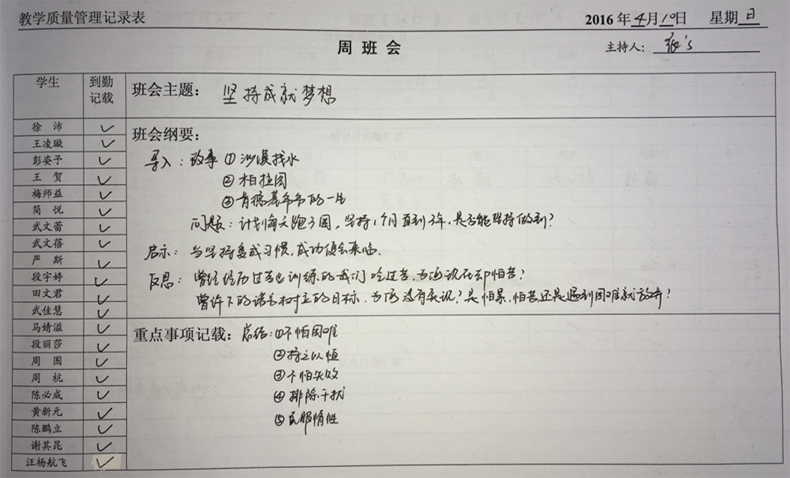 教学质量管理记录表
2016年4月10日 星期日
周班会
主持人：
学生 到勤记载
班会主题： 坚持成就梦想
班会纲要：
导入：故事①沙漠找水
②柏拉图
③肯德基爷爷的一生
问题：计划每天跑3圈，坚持1个月直到3年，是否能坚持做到？
启示：当坚持变成习惯，成功便会来临。
反思：曾经经历过专业训练的我们吃过苦，为何现在却怕苦？
曾许下的诺言和立的目标，为何没有实现？是怕累，怕苦还是遇到困难就放弃？
重点事项记载：总结：①不怕困难
②持之以恒
③不怕失败
④排除干扰
⑤克服惰性
徐沛 ✓
王凌璇 ✓
彭姿予 ✓
王贺 ✓
梅师益 ✓
简悦 ✓
武文蕾 ✓
武文蓓 ✓
严斯 ✓
段宇婷 ✓
田文君 ✓
武佳慧 ✓
马婧溢 ✓
段丽莎 ✓
周围 ✓
周杭 ✓
陈必成 ✓
黄新元 ✓
陈鹏立 ✓
谢其昆 ✓
汪杨航飞 ✓